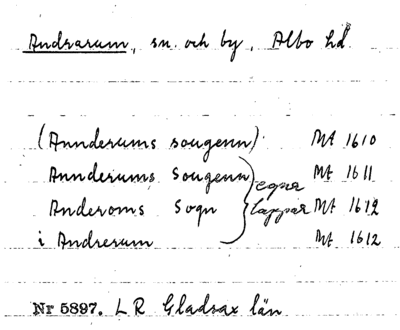 Andrarum, sn. och by, Albo hd.
(Annderums sougenn) Mt 1610
Annderums Sougenn) Mt 1611
egna
Anderoms Sogn lappar Mt 1612
i Andrerum Mt 1612
Nr 5897. L R Gladsax län